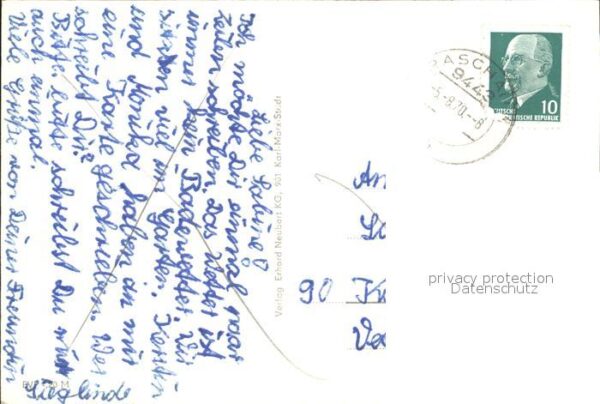 Liebe Sabine!
Ich möchte Dir einmal paar
Zeilen schreiben. Das Wetter ist
immer kein Badewetter. Wir
sitzen viel im Garten. Kerstin
und Monika haben an mir
eine Karte geschrieben. Wer
schreibt Dir?
Bitte, bitte schreibst Du mir
auch einmal.
Viele Grüße von Deiner Freundin
Sieglinde
Verlag Erhard Neubert KG, 901 Karl-Marx-Stadt
RASCHAU
9443
-8.70.-8
10
DEUTSCHE
DEMOKRATISCHE REPUBLIK
An
90 K
privacy protection
Datenschutz